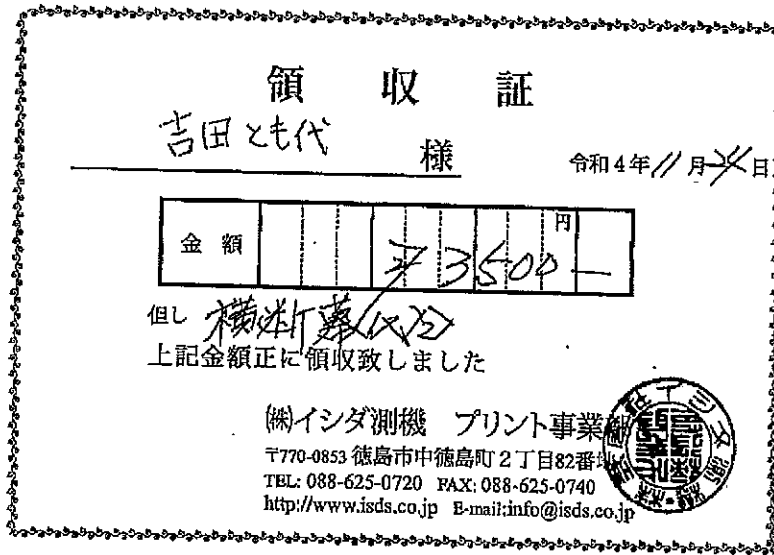 領収証
吉田とも代 様
令和4年11月24日
金額 円
¥3500-
但し 横断幕代
上記金額正に領収致しました
㈱イシダ測機 プリント事業部
〒770-0853 徳島市中徳島町2丁目82番地
TEL: 088-625-0720 FAX: 088-625-0740
http://www.isds.co.jp E-mail:info@isds.co.jp